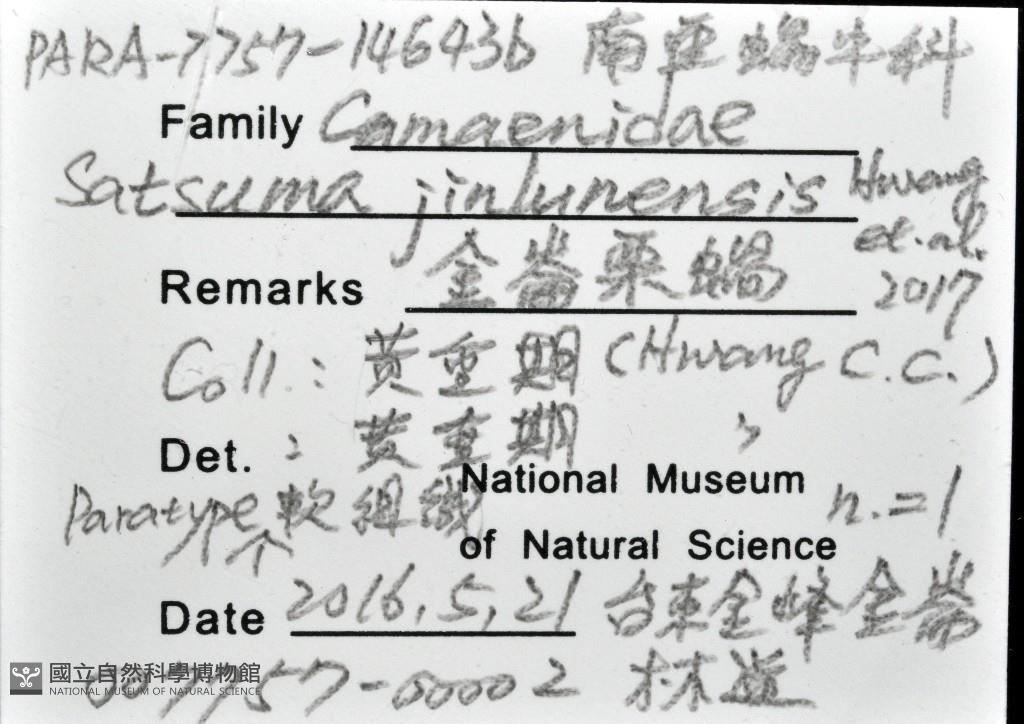 PARA-7757-14643b 南亞蝸牛科
Family Camaenidae
Satsuma jinlunensis Hwang et.al. 2017
Remarks 金崙栗蝸
Coll.: 黄重期 (Hwang C.C.)
Det. : 黄重期 〃
National Museum
Paratype 軟組織 n.=1
of Natural Science
Date 2016.5.21 台東金峰金崙
007757-00002 林道
國立自然科學博物館
NATIONAL MUSEUM OF NATURAL SCIENCE